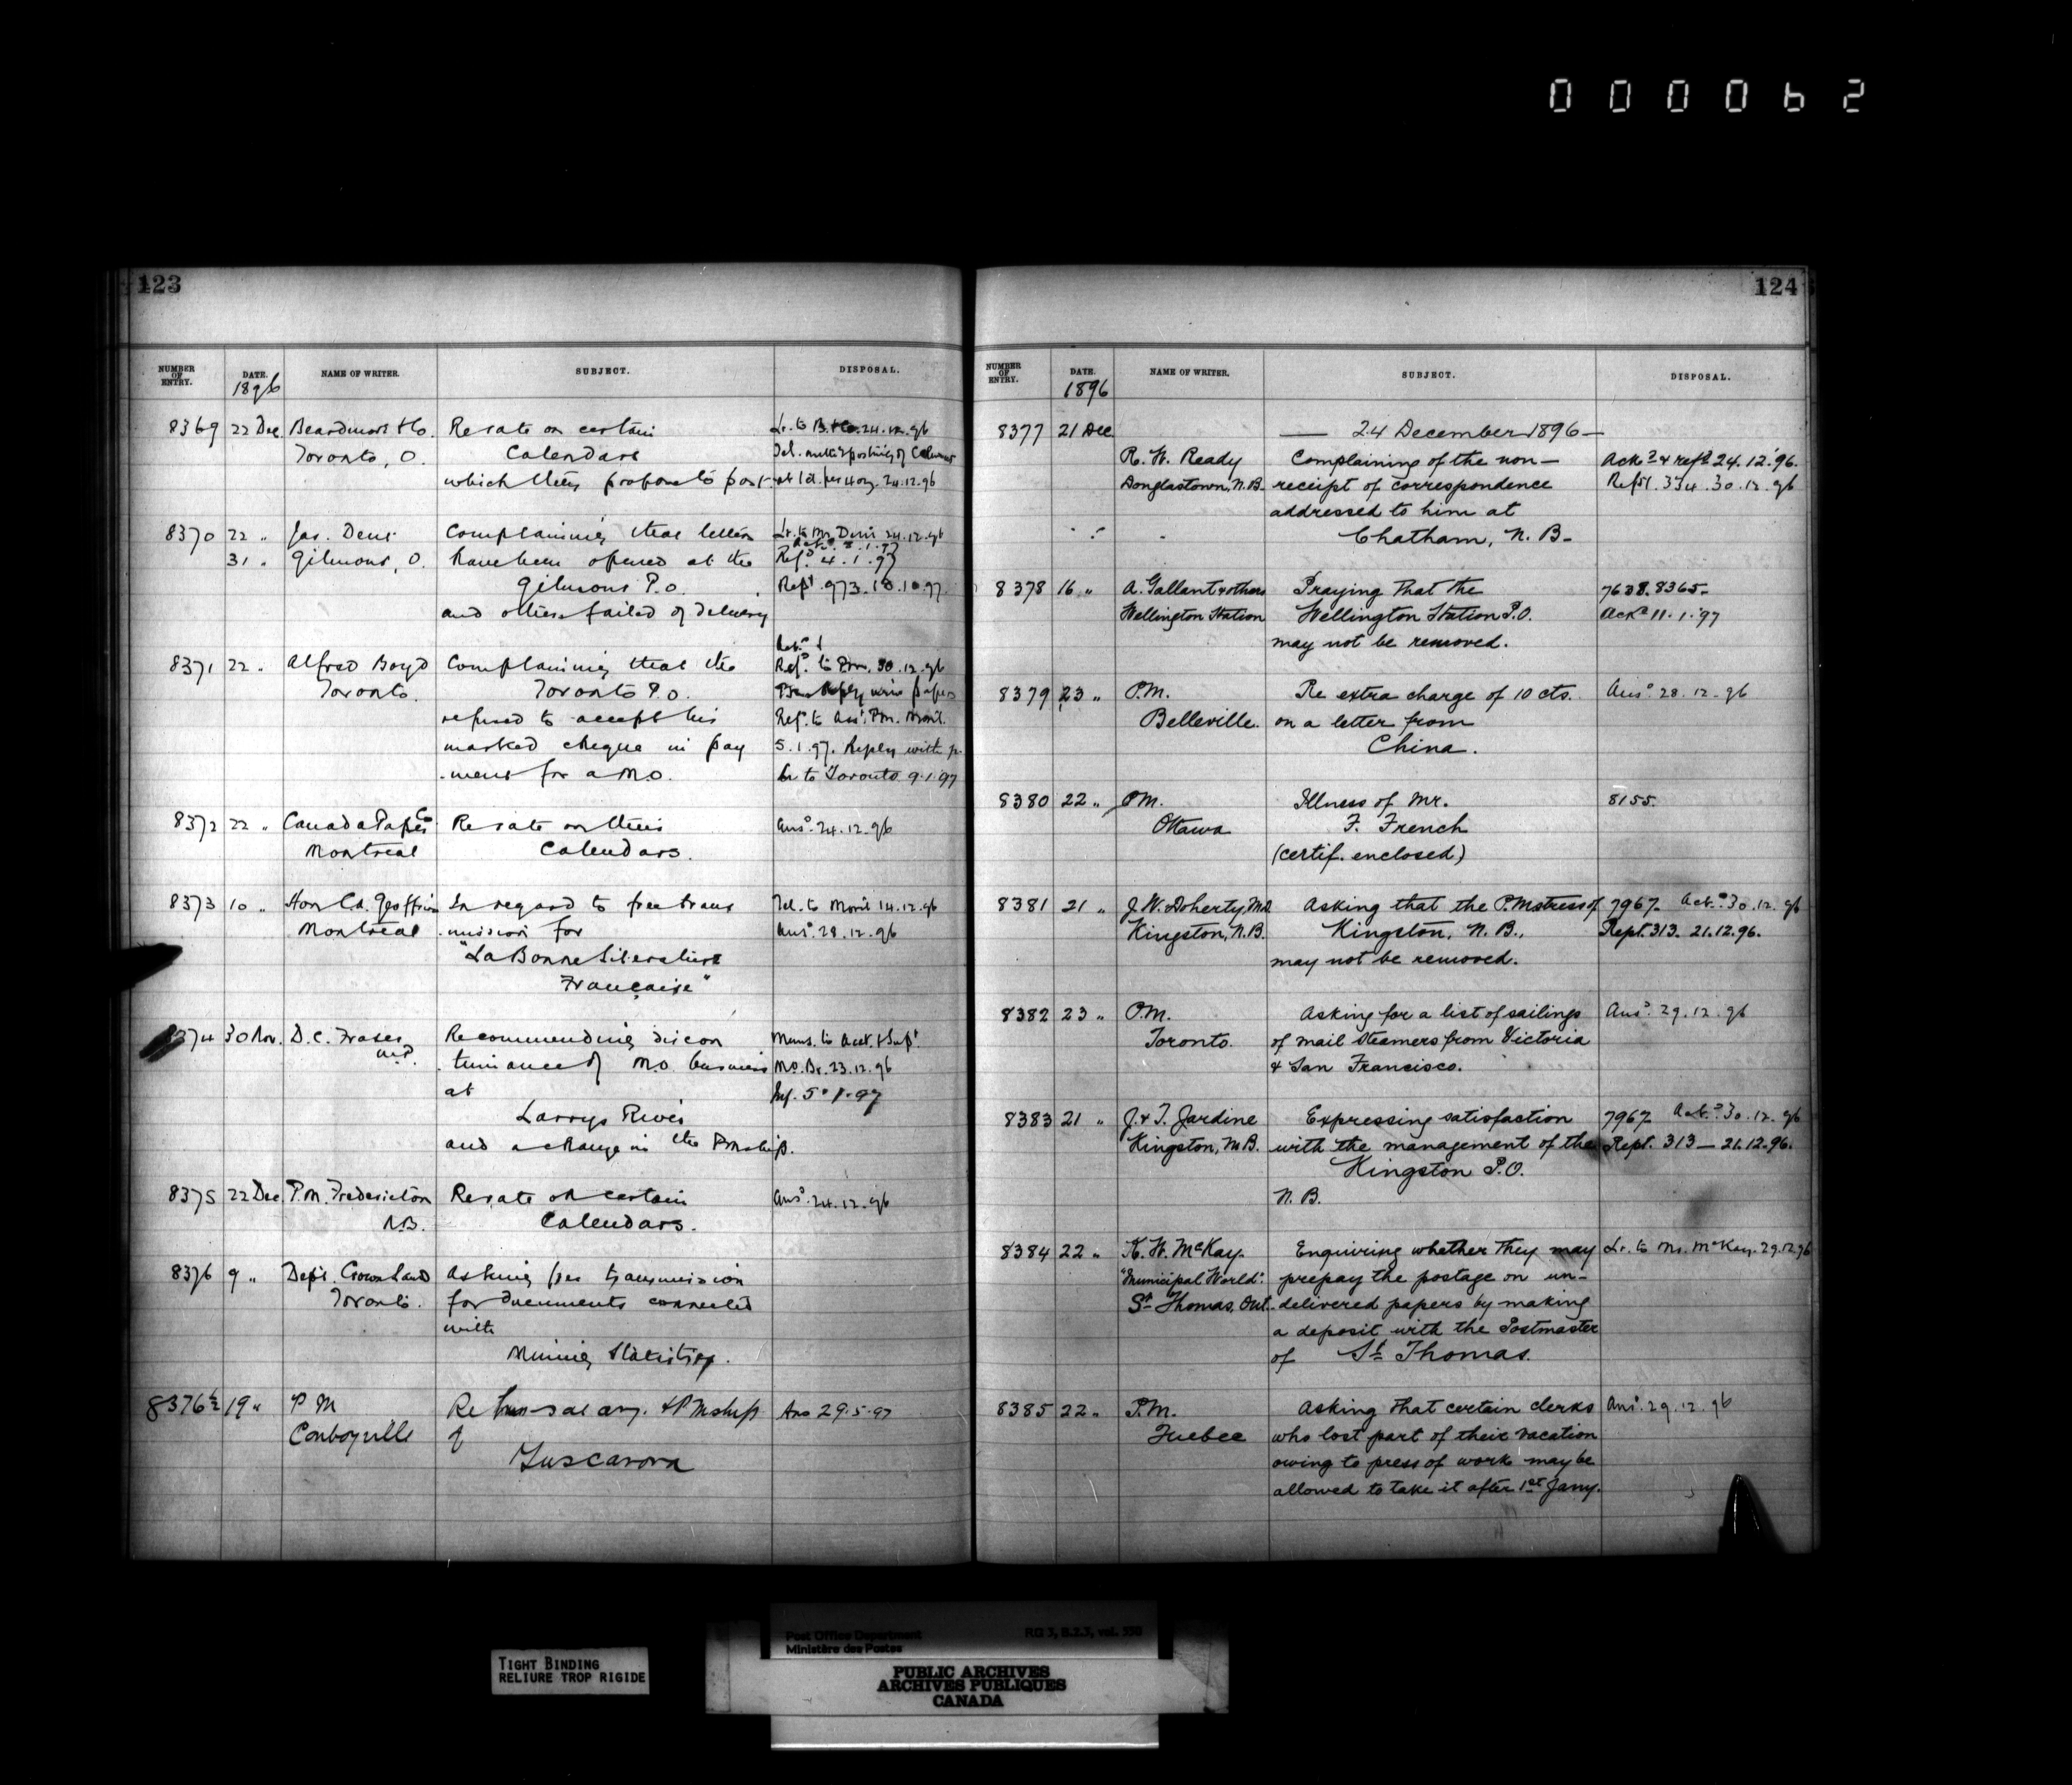 000062
123
NUMBER OF ENTRY. DATE. NAME OF WRITER. SUBJECT. DISPOSAL.
1896
8369 22 Dec. Beardmore & Co. Re rate on certain Lr. to B. & Co. 24.12.96
Toronto, O. Calendars
which they propose to post. at 1d. per 4 oz. 24.12.96
8370 22 " Jas. Dens Complaining that letters Lr. to Mr. Dens 24.12.96
31 " Gilmour, O. have been opened at the Refd. 4.1.97
Gilmour P.O. Rept. 973. 18.10.97
and others failed of delivery
8371 22 " Alfred Boyd Complaining that the Refd. to P.m. 30.12.96
Toronto. Toronto P.O. Reply with papers
refused to accept his Refd. to Asst. P.m. Montl.
marked cheque in pay 5.1.97. Reply with p.
-ment for a M.O. Lr to Toronto 9.1.97
8372 22 " Canada Paper Co Re rate on their Ansd. 24.12.96
Montreal Calendars.
8373 10 " Hon C.A. Geoffrion In regard to free trans Tel. to Montl 14.12.96
Montreal -mission for Ansd. 28.12.96
"La Bonne Litterature
Française"
8374 30 Nov. D.C. Fraser Recommending discon Memo. to Acct. & Supt.
M.P. -tinuance of M.O. business M.O. Br. 23.12.96
at 5.1.97
Larrys River
and a change in the Pmship.
8375 22 Dec P.M. Fredericton Re rate on certain Ansd. 24.12.96
N.B. Calendars.
8376 9 " Dept. Crown Lands Asking free transmission
Toronto. for documents connected
with
Mining Statistics.
8376½ 19 " P M Re salary. & PMship Ans 29.5.97
Conboyville of
Tuscarora
124
NUMBER OF ENTRY. DATE. NAME OF WRITER. SUBJECT. DISPOSAL.
1896
8377 21 Dec. — 24 December 1896 —
R. W. Ready Complaining of the non- Ackd & refd 24.12.96.
Douglastown, N.B. receipt of correspondence Rept. 334. 30.12.96
addressed to him at
Chatham, N. B.
8378 16 " A. Gallant & others Praying that the 7638. 8365.
Wellington Station Wellington Station P.O. Ackd 11.1.97
may not be removed.
8379 23 " P.M. Re extra charge of 10 cts. Ansd. 28.12.96
Belleville. on a letter from
China.
8380 22 " P.M. Illness of Mr. 8155.
Ottawa F. French
(certif. enclosed)
8381 21 " J. W. Doherty, M.D. Asking that the P.Mstress of 7967. Ackd. 30.12.96
Kingston, N.B. Kingston, N. B., Rept. 313. 21.12.96.
may not be removed.
8382 23 " P.M. Asking for a list of sailings Ansd. 29.12.96
Toronto. of mail steamers from Victoria
& San Francisco.
8383 21 " J. & T. Jardine Expressing satisfaction 7967 Ackd. 30.12.96
Kingston, N.B. with the management of the Rept. 313 — 21.12.96.
Kingston P.O.
N. B.
8384 22 " K. W. McKay. Enquiring whether they may Lr. to Mr. McKay. 29.12.96
"Municipal World". prepay the postage on un-
St. Thomas, Ont. delivered papers by making
a deposit with the Postmaster
of St. Thomas.
8385 22 " P.M. Asking that certain clerks Ansd. 29.12.96
Quebec who lost part of their vacation
owing to press of work may be
allowed to take it after 1st Jany.
TIGHT BINDING
RELIURE TROP RIGIDE
Post Office Department RG 3, B.2.3, vol. 338
Ministère des Postes
PUBLIC ARCHIVES
ARCHIVES PUBLIQUES
CANADA